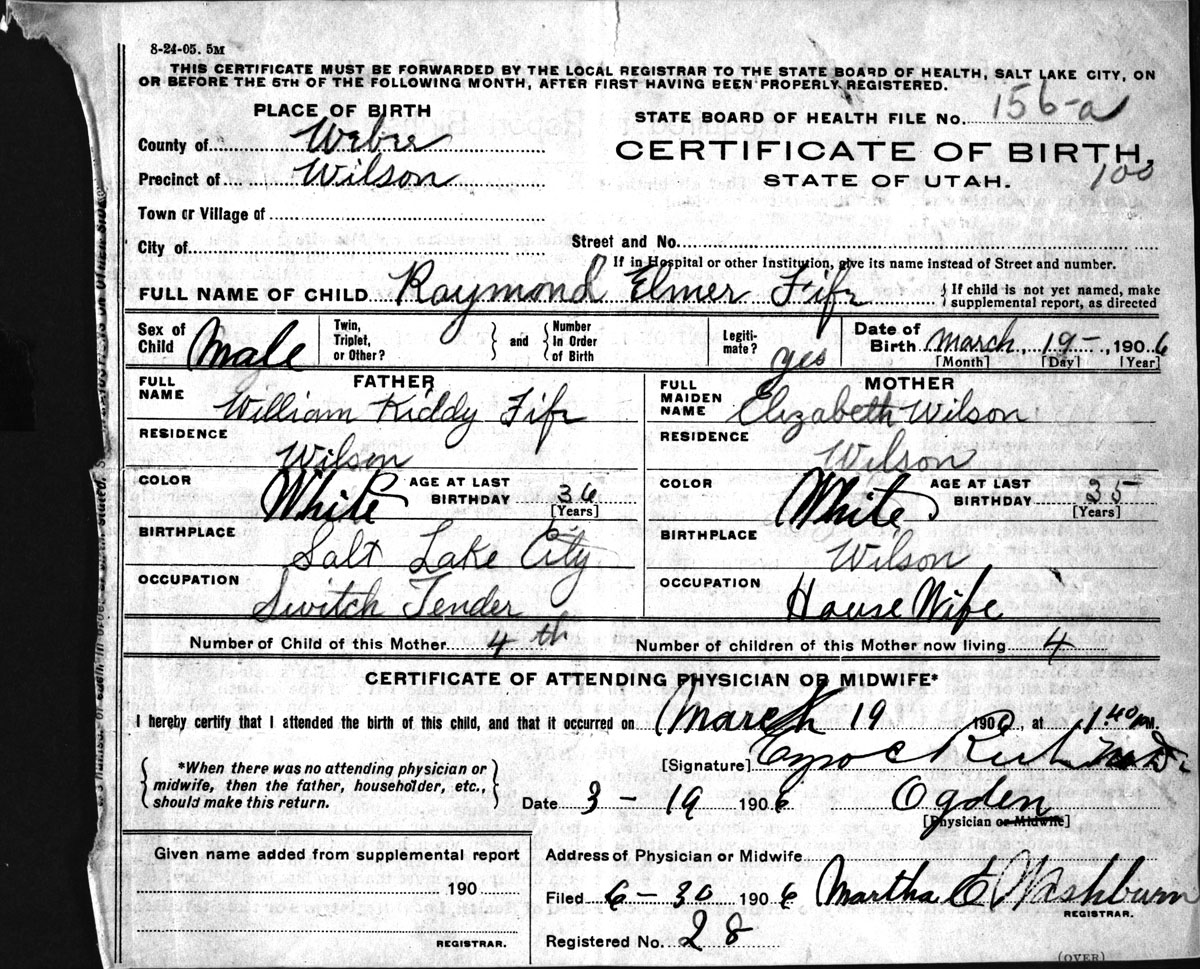 8-24-05. 5M
THIS CERTIFICATE MUST BE FORWARDED BY THE LOCAL REGISTRAR TO THE STATE BOARD OF HEALTH, SALT LAKE CITY, ON
OR BEFORE THE 5TH OF THE FOLLOWING MONTH, AFTER FIRST HAVING BEEN PROPERLY REGISTERED.
PLACE OF BIRTH
STATE BOARD OF HEALTH FILE No. 156-a
County of Weber
CERTIFICATE OF BIRTH,
100
Precinct of Wilson
STATE OF UTAH.
Town or Village of
City of
Street and No.
If in Hospital or other Institution, give its name instead of Street and number.
FULL NAME OF CHILD Raymond Elmer Fife
{ If child is not yet named, make
supplemental report, as directed
Sex of
Child Male
Twin,
Triplet,
or Other? } and { Number
In Order
of Birth
Legiti-
mate? yes
Date of
Birth March, 19-, 1906
[Month] [Day] [Year]
FATHER
FULL
NAME William Kiddy Fife
RESIDENCE
Wilson
COLOR White AGE AT LAST
BIRTHDAY 36
[Years]
BIRTHPLACE
Salt Lake City
OCCUPATION
Switch Tender
MOTHER
FULL
MAIDEN
NAME Elizabeth Wilson
RESIDENCE
Wilson
COLOR White AGE AT LAST
BIRTHDAY 35
[Years]
BIRTHPLACE
Wilson
OCCUPATION
House Wife
Number of Child of this Mother 4th
Number of children of this Mother now living 4
CERTIFICATE OF ATTENDING PHYSICIAN OR MIDWIFE*
I hereby certify that I attended the birth of this child, and that it occurred on March 19 1906, at 1 40 PM.
[Signature] M.D.
{ *When there was no attending physician or
midwife, then the father, householder, etc.,
should make this return. }
Date 3-19 1906 Ogden
[Physician or Midwife]
Given name added from supplemental report
190
REGISTRAR.
Address of Physician or Midwife
Filed 6-30 1906 Martha E Washburn
REGISTRAR.
Registered No. 28
(OVER)